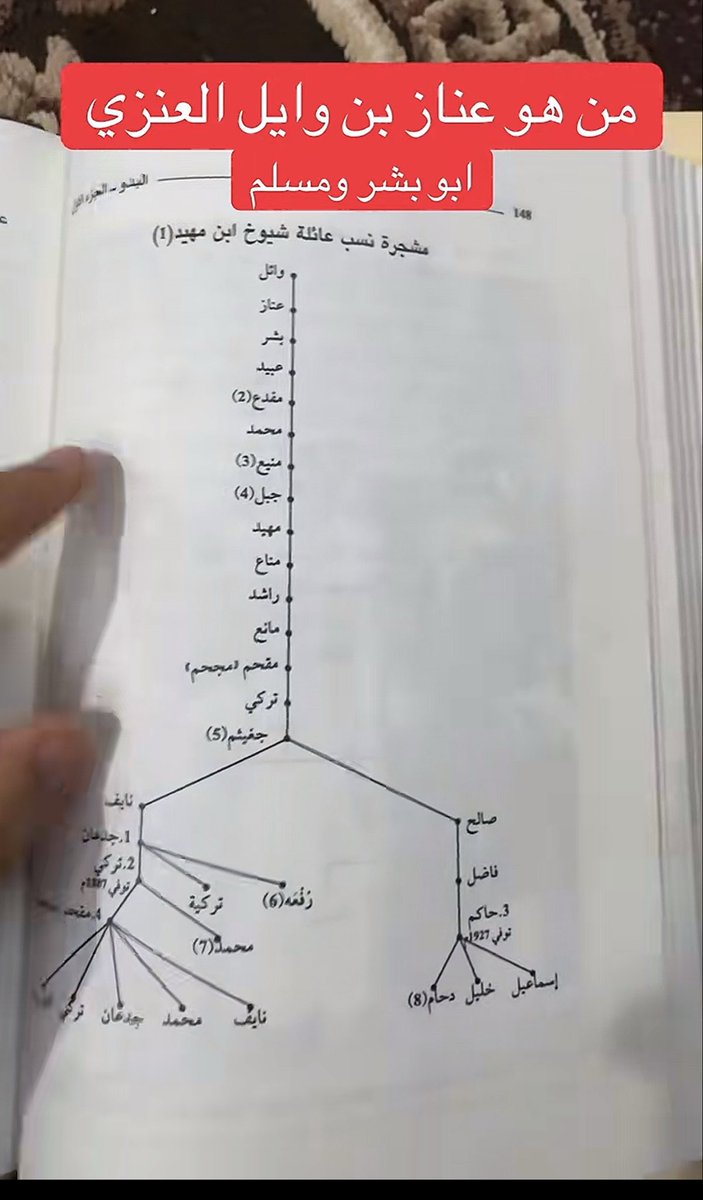 من هو عناز بن وايل العنزي
ابو بشر ومسلم
البدو - الجزء الأول
148
مشجرة نسب عائلة شيوخ ابن مهيد (1)
وائل
عناز
بشر
عبيد
مفدع (2)
محمد
منيع (3)
جبل (4)
مهيد
مناع
راشد
مانع
مقحم «مجحم»
تركي
جغيثم (5)
نايف
صالح
1. جدعان
2. تركي
توفي 1887م
فاضل
3. حاكم
توفي 1927م
رُفْعَه (6)
تركية
محمد (7)
4. مقحم
إسماعيل
خليل
دحام (8)
نايف
محمد
جدعان
تركي